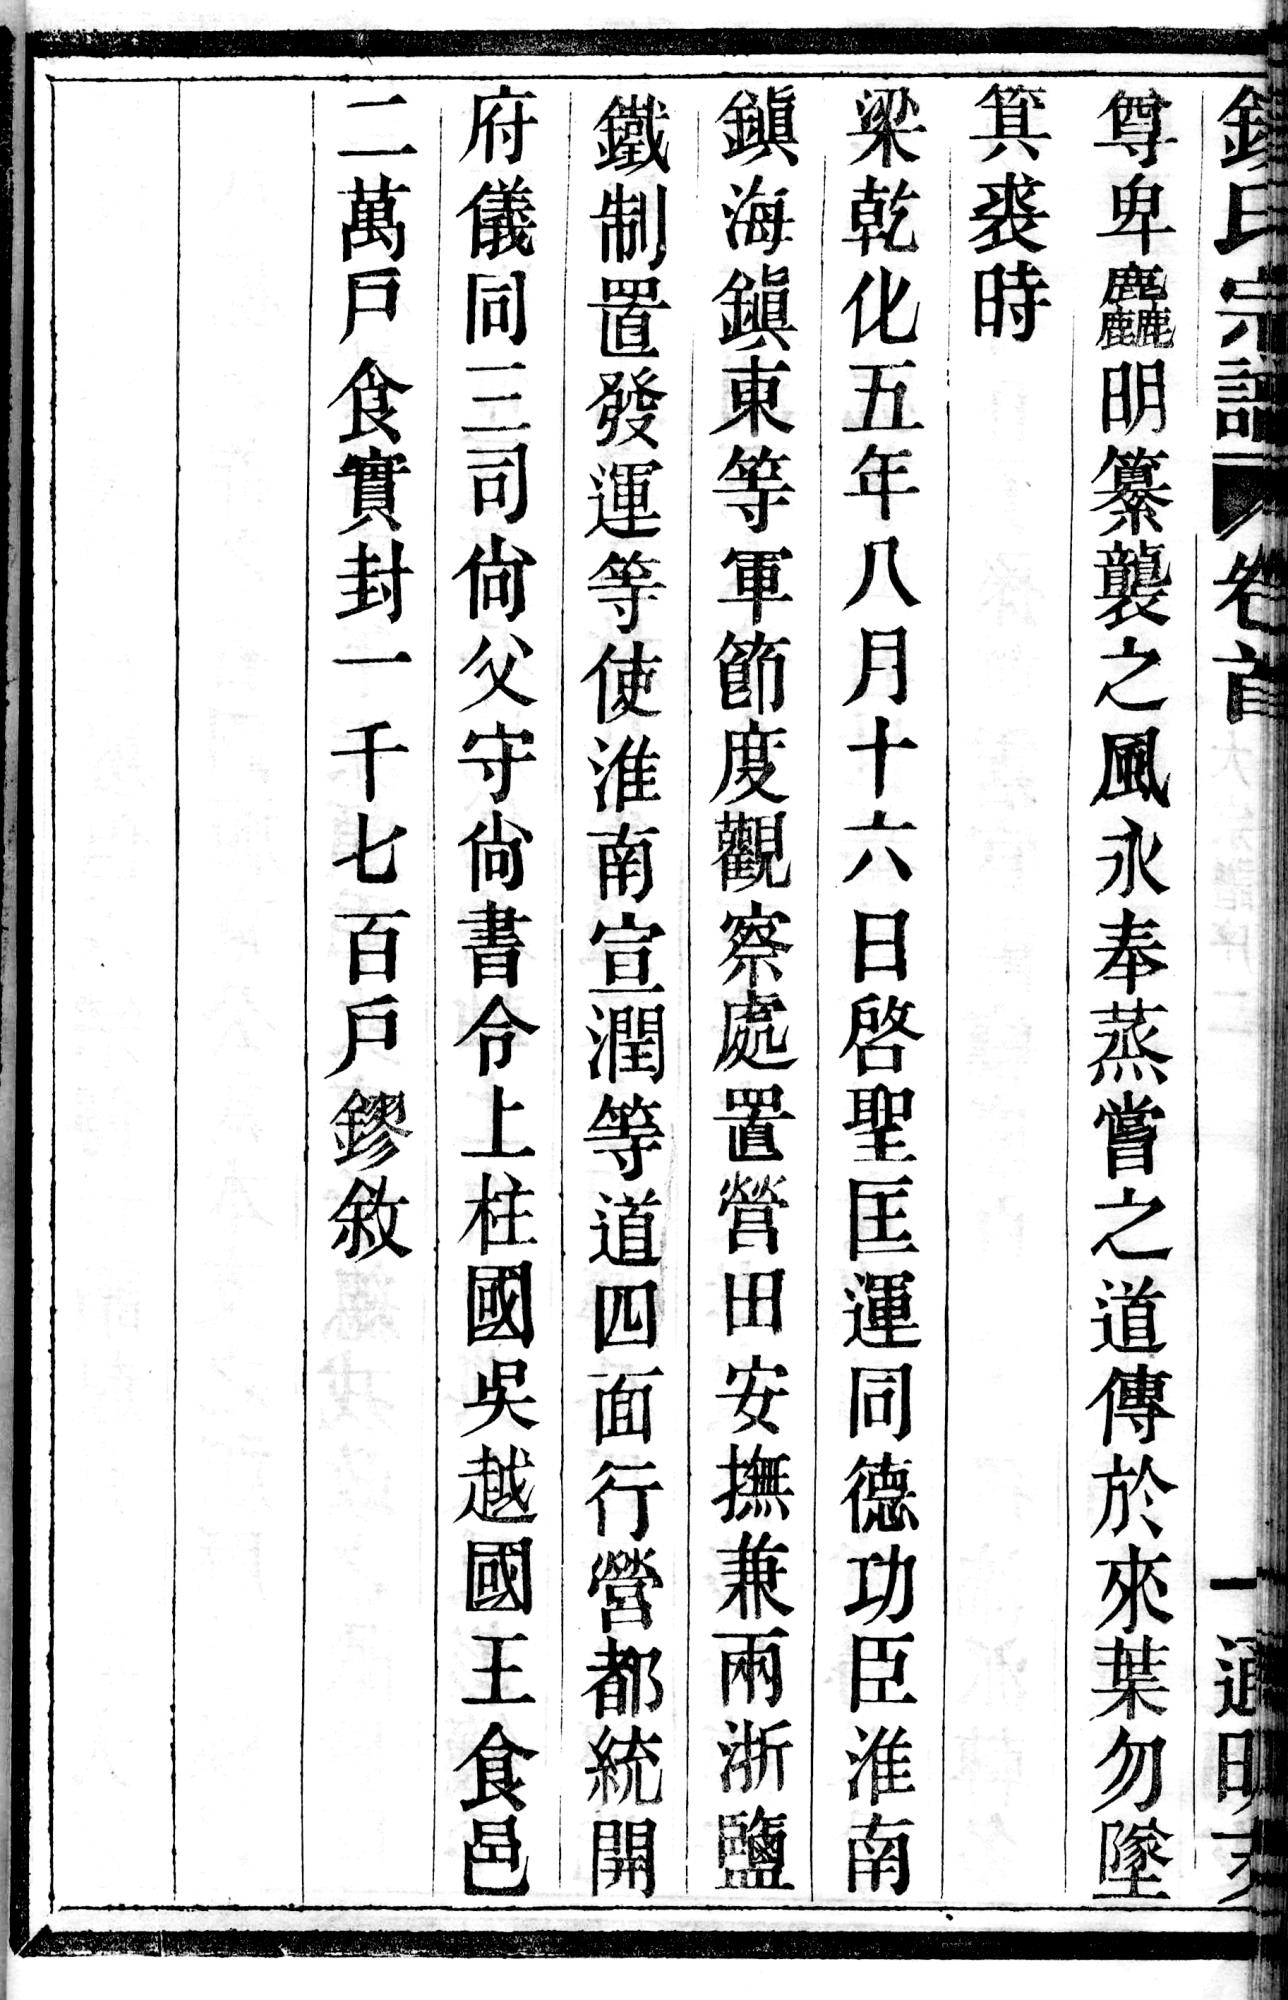 錢氏宗譜 卷首 一 通明
尊卑麤明纂襲之風永奉蒸嘗之道傳於來葉勿墜
箕裘時
梁乾化五年八月十六日啓聖匡運同德功臣淮南
鎭海鎭東等軍節度觀察處置營田安撫兼兩浙鹽
鐵制置發運等使淮南宣潤等道四面行營都統開
府儀同三司尙父守尙書令上柱國吳越國王食邑
二萬戸食實封一千七百戸鏐敘